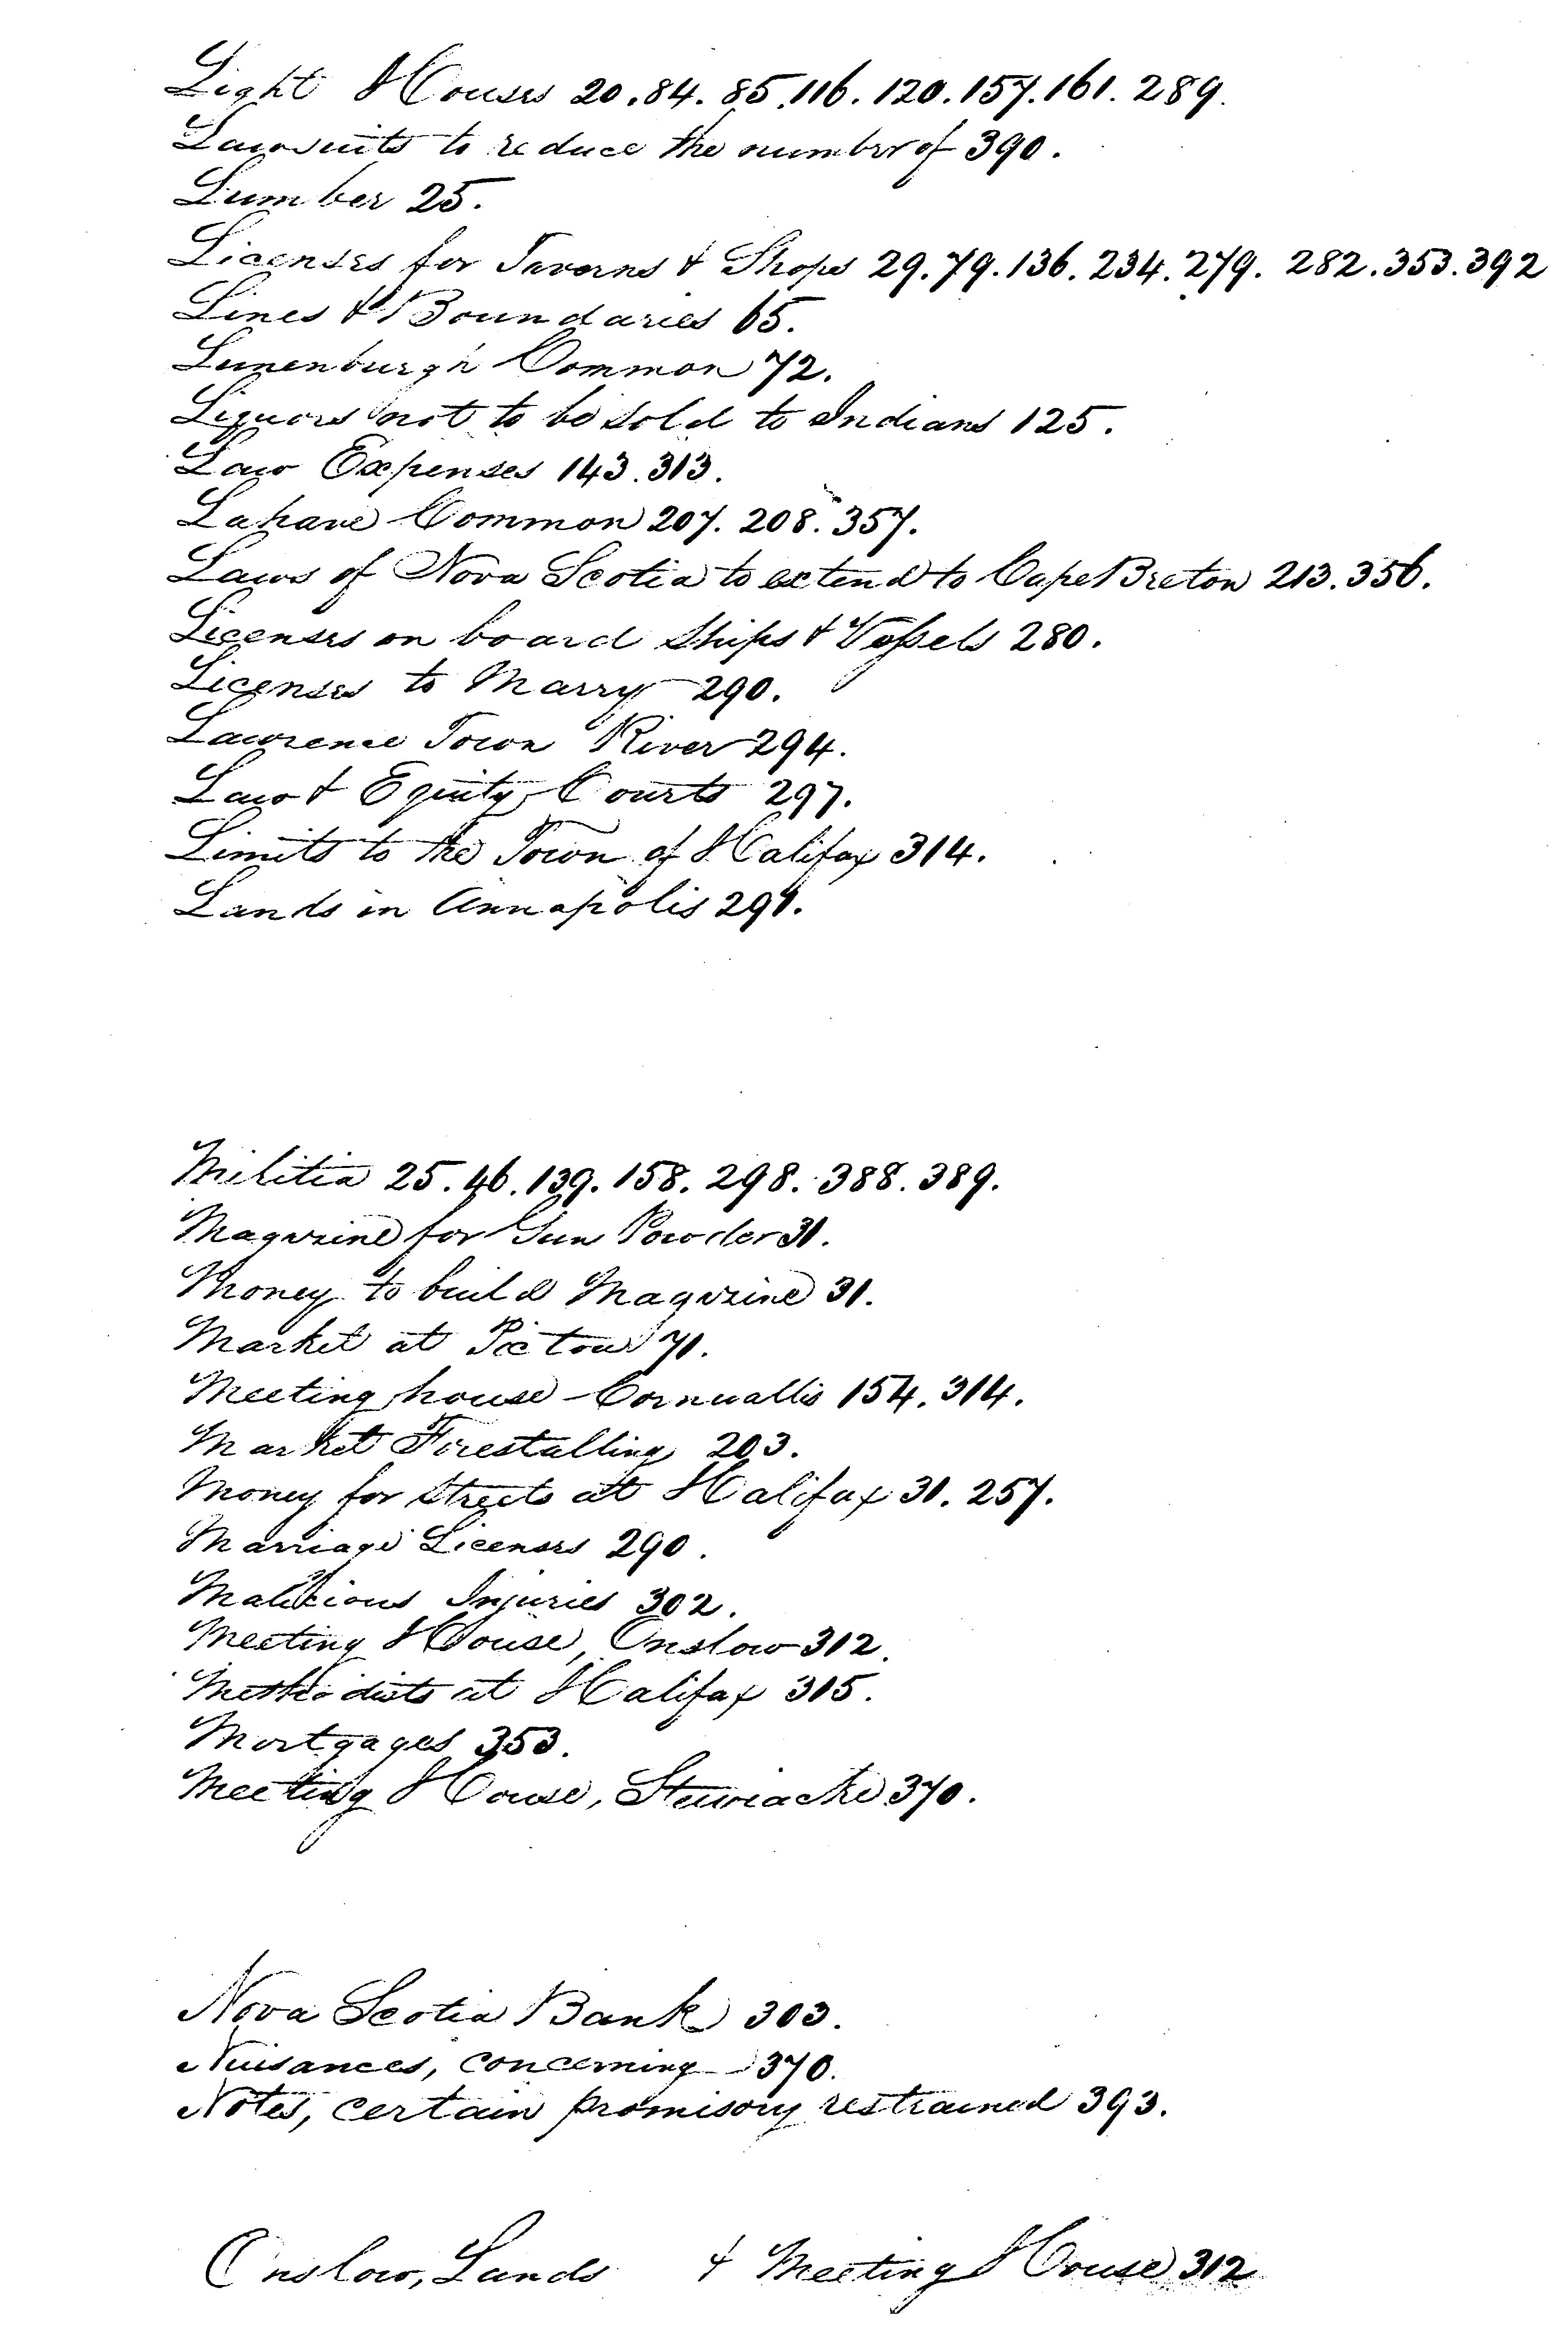 Light Houses 20.84.85.116.120.157.161.289.
Lawsuits to reduce the number of 390.
Lumber 25.
Licenses for Taverns & Shops 29.79.136.234.279.282.353.392
Lines & Boundaries 65.
Lunenburgh Common 72.
Liquors not to be sold to Indians 125.
Law Expenses 143.313.
Lahave Common 207.208.357.
Laws of Nova Scotia to extend to Cape Breton 213.356.
Licenses on board Ships & Vessels 280.
Licenses to Marry 290.
Lawrence Town River 294.
Law & Equity Courts 297.
Limits to the Town of Halifax 314.
Lands in Annapolis 291.
Militia 25.46.139.158.298.388.389.
Magazine for Gun Powder 31.
Money to build Magazine 31.
Market at Pictou 71.
Meeting house Cornwallis 154.314.
Market Forestalling 203.
Money for Streets at Halifax 31.257.
Marriage Licenses 290.
Malicious Injuries 302.
Meeting House, Onslow 312.
Methodists at Halifax 315.
Mortgages 353.
Meeting House, Stewiacke 370.
Nova Scotia Bank 303.
Nuisances, concerning 370.
Notes, certain promisory restrained 393.
Onslow, Lands & Meeting House 312